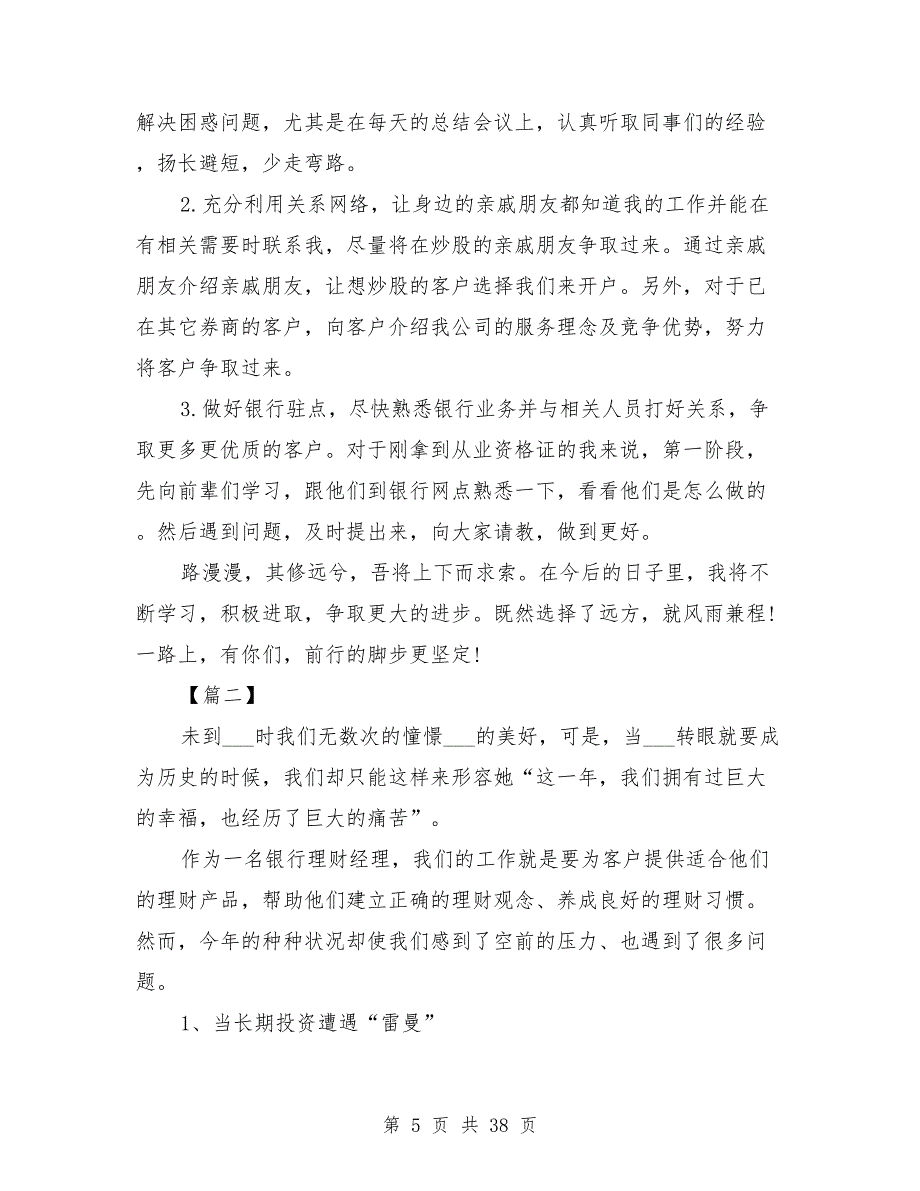 解决困惑问题，尤其是在每天的总结会议上，认真听取同事们的经验
，扬长避短，少走弯路。
2.充分利用关系网络，让身边的亲戚朋友都知道我的工作并能在
有相关需要时联系我，尽量将在炒股的亲戚朋友争取过来。通过亲戚
朋友介绍亲戚朋友，让想炒股的客户选择我们来开户。另外，对于已
在其它券商的客户，向客户介绍我公司的服务理念及竞争优势，努力
将客户争取过来。
3.做好银行驻点，尽快熟悉银行业务并与相关人员打好关系，争
取更多更优质的客户。对于刚拿到从业资格证的我来说，第一阶段，
先向前辈们学习，跟他们到银行网点熟悉一下，看看他们是怎么做的
。然后遇到问题，及时提出来，向大家请教，做到更好。
路漫漫，其修远兮，吾将上下而求索。在今后的日子里，我将不
断学习，积极进取，争取更大的进步。既然选择了远方，就风雨兼程!
一路上，有你们，前行的脚步更坚定!
【篇二】
未到___时我们无数次的憧憬___的美好，可是，当___转眼就要成
为历史的时候，我们却只能这样来形容她“这一年，我们拥有过巨大
的幸福，也经历了巨大的痛苦”。
作为一名银行理财经理，我们的工作就是要为客户提供适合他们
的理财产品，帮助他们建立正确的理财观念、养成良好的理财习惯。
然而，今年的种种状况却使我们感到了空前的压力、也遇到了很多问
题。
1、当长期投资遭遇“雷曼”
第 5 页 共 38 页